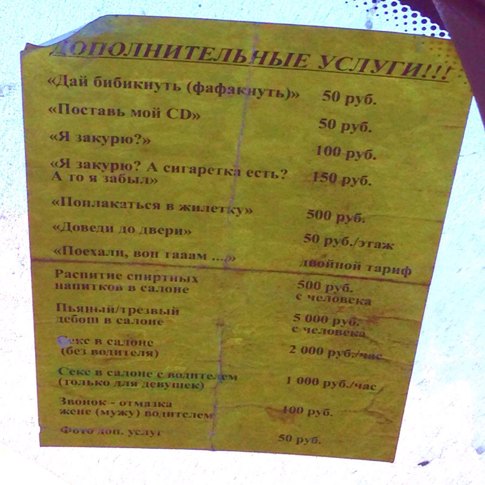 ДОПОЛНИТЕЛЬНЫЕ УСЛУГИ!!!
«Дай бибикнуть (фафакнуть)» 50 руб.
«Поставь мой CD» 50 руб.
«Я закурю?» 100 руб.
«Я закурю? А сигаретка есть?
А то я забыл» 150 руб.
«Поплакаться в жилетку» 500 руб.
«Доведи до двери» 50 руб./этаж
«Поехали, вон тааам ....» двойной тариф
Распитие спиртных 500 руб.
напитков в салоне с человека
Пьяный/трезвый 5 000 руб.
дебош в салоне с человека
Секс в салоне 2 000 руб./час
(без водителя)
Секс в салоне с водителем 1 000 руб./час
(только для девушек)
Звонок - отмазка 100 руб.
жене (мужу) водителем
Фото доп. услуг 50 руб.